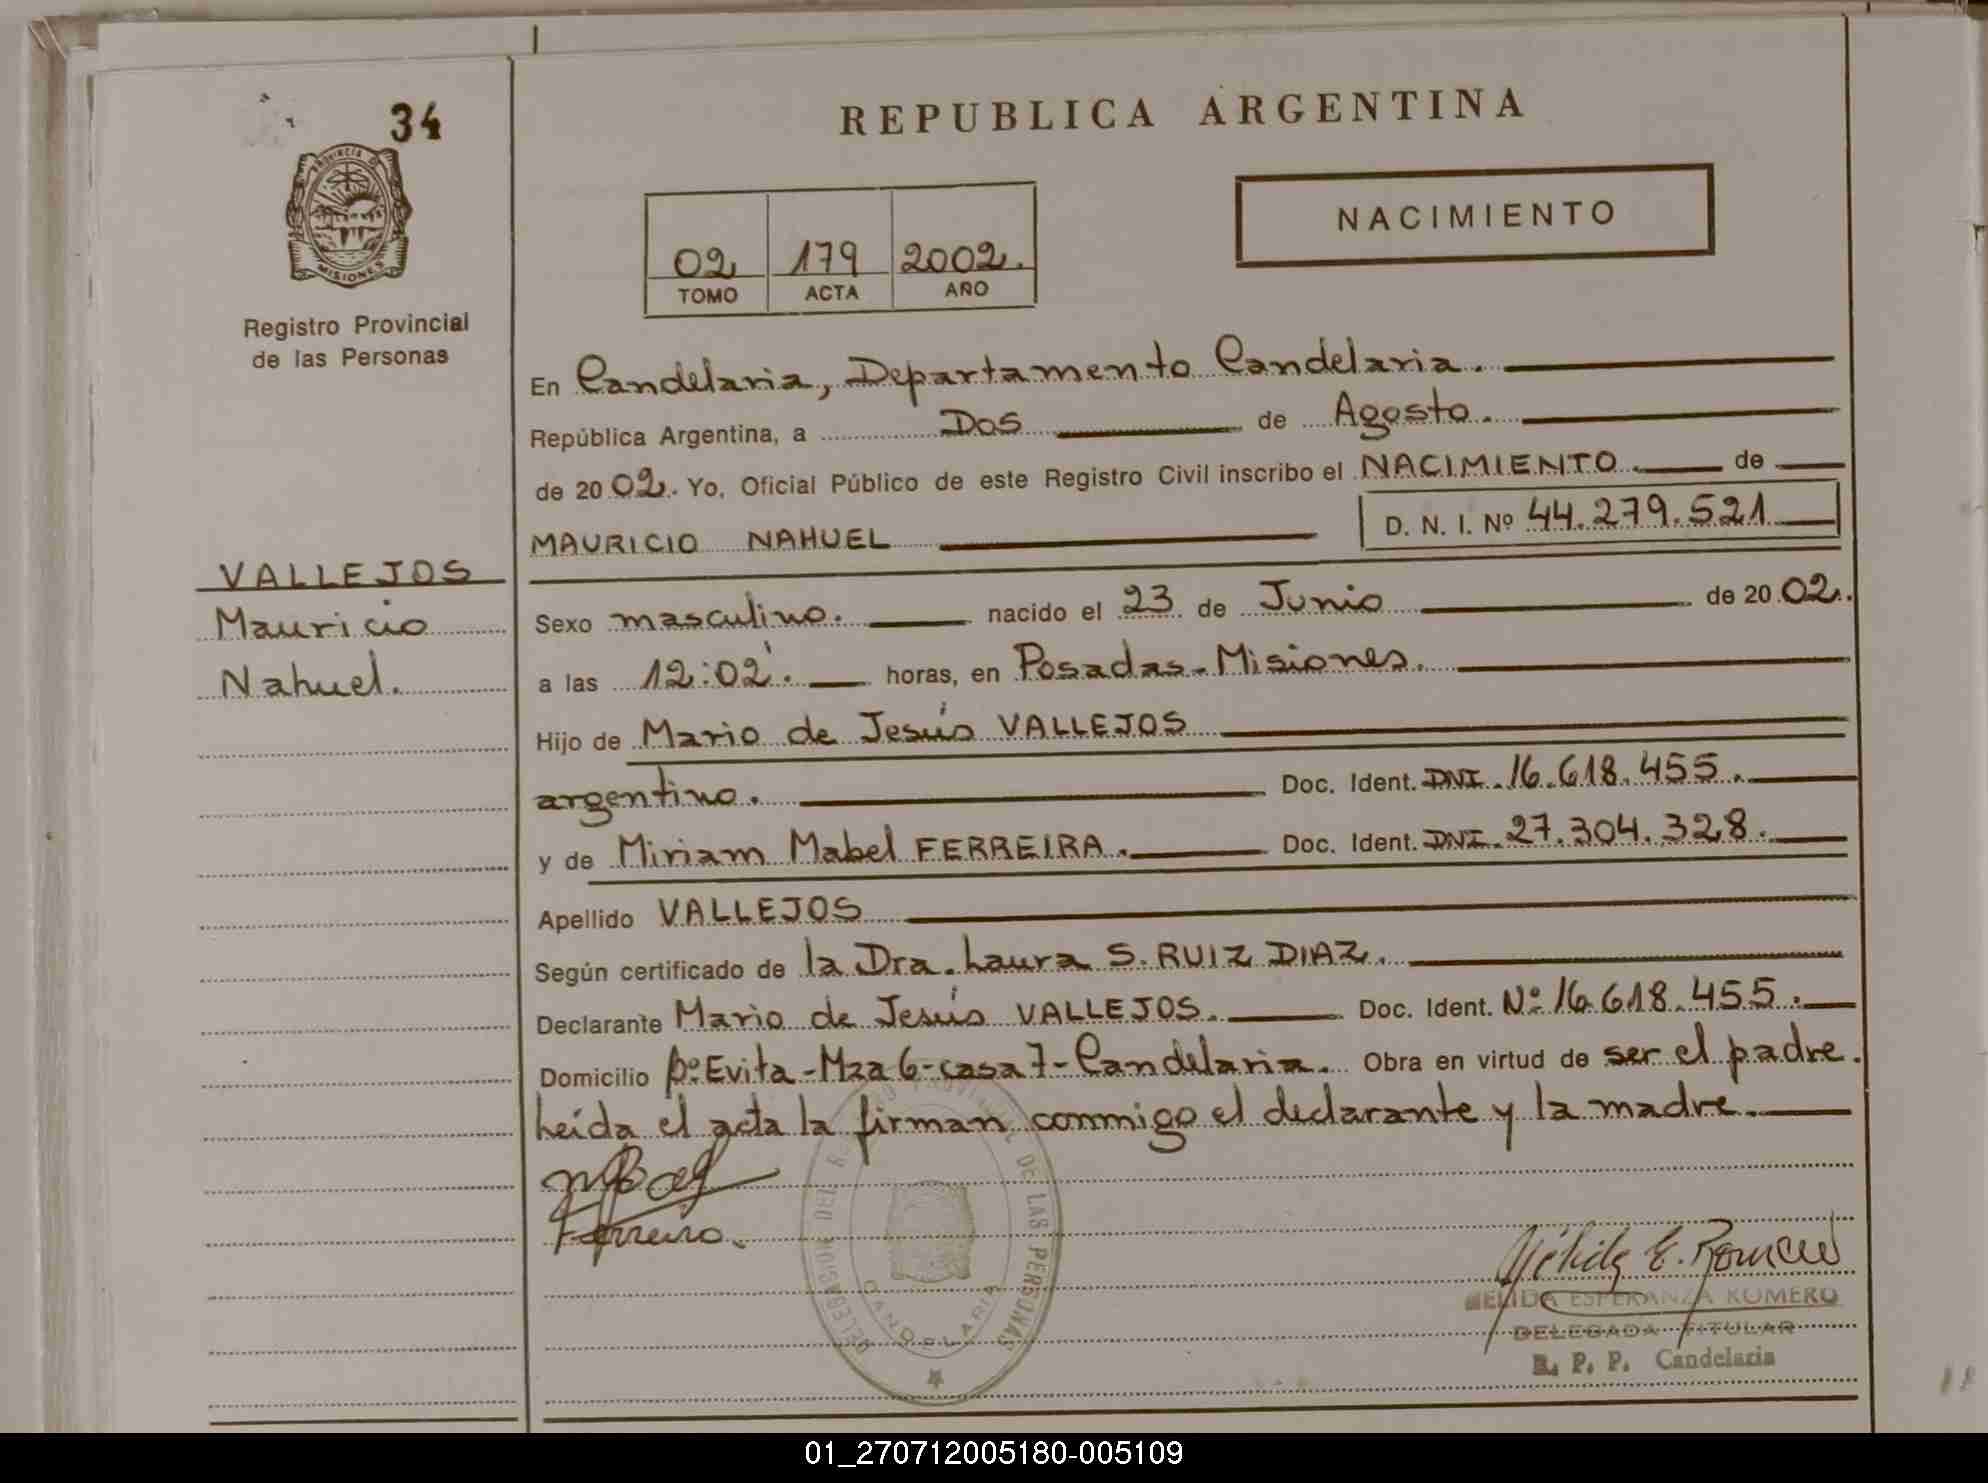 34
PROVINCIA D
MISIONES
Registro Provincial
de las Personas
VALLEJOS
Mauricio
Nahuel.
REPUBLICA ARGENTINA
02 179 2002.
TOMO ACTA AÑO
NACIMIENTO
En Candelaria, Departamento Candelaria.
República Argentina, a Dos de Agosto.
de 2002. Yo, Oficial Público de este Registro Civil inscribo el NACIMIENTO. de
MAURICIO NAHUEL D. N. I. Nº 44.279.521
Sexo masculino. nacido el 23 de Junio de 2002.
a las 12:02'. horas, en Posadas-Misiones.
Hijo de Mario de Jesús VALLEJOS
argentino. Doc. Ident. DNI. 16.618.455.
y de Miriam Mabel FERREIRA. Doc. Ident. DNI. 27.304.328.
Apellido VALLEJOS
Según certificado de la Dra. Laura S. RUIZ DIAZ.
Declarante Mario de Jesús VALLEJOS. Doc. Ident. Nº 16.618.455.
Domicilio Bº Evita-Mza 6-casa 7-Candelaria. Obra en virtud de ser el padre.
Leída el acta la firman conmigo el declarante y la madre.
DE LAS PERSONAS
CANDELARIA
Nélida E. Romero
NELIDA ESPERANZA ROMERO
DELEGADA TITULAR
R. P. P. Candelaria
01_270712005180-005109